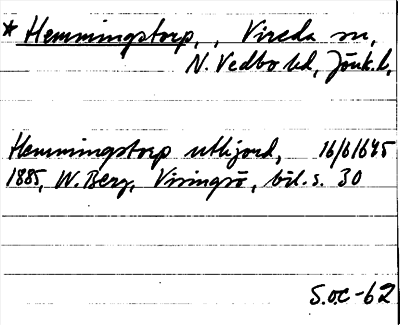 * Hemmingstorp, , Vireda sn,
N. Vedbo hd, Jönk. l,
Hemmingstorp utkjord, 16/6 1645
1885, W. Berg, Visingsö, bil. s. 30
S.OC-62